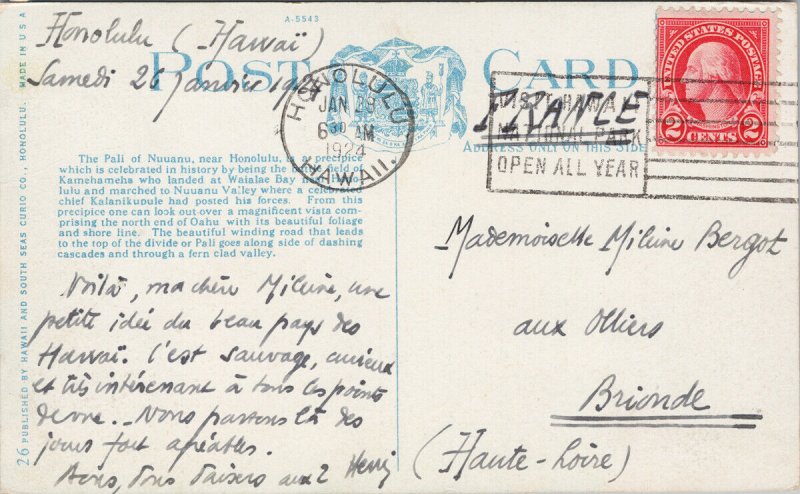 A-5543
POST CARD
Honolulu (Hawaï)
Samedi 26 janvier
HONOLULU
JAN 28
6 30 AM
1924
HAWAII.
VISIT HAWAII
NATIONAL PARK
OPEN ALL YEAR
UNITED STATES POSTAGE
2 CENTS 2
FRANCE
ADDRESS ONLY ON THIS SIDE
The Pali of Nuuanu, near Honolulu, is a precipice
which is celebrated in history by being the field of
Kamehameha who landed at Waialae Bay near Hono-
lulu and marched to Nuuanu Valley where a celebrated
chief Kalanikupule had posted his forces. From this
precipice one can look out over a magnificent vista com-
prising the north end of Oahu with its beautiful foliage
and shore line. The beautiful winding road that leads
to the top of the divide or Pali goes along side of dashing
cascades and through a fern clad valley.
Voilà, ma chère Mileine, une
petite idée du beau pays des
Hawaï. C'est sauvage, curieux
et très intérenant à tous les points
de vue. _ Nous passons là des
jours fort agréables.
à vous deux Henri
Mademoiselle Mileine Bergot
aux Olliers
Brionde
(Haute-Loire)
26 PUBLISHED BY HAWAII AND SOUTH SEAS CURIO CO., HONOLULU. MADE IN U S A